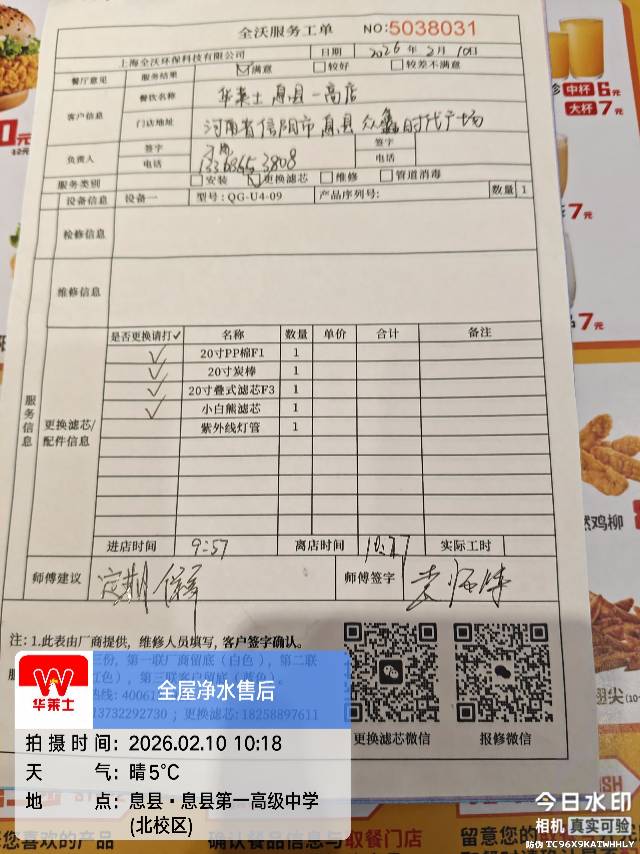 全沃服务工单 NO:5038031
上海全沃环保科技有限公司 日期 2026年2月10日
餐厅意见 服务结果 ☑满意 □较好 □较差不满意
客户信息 餐饮名称 华莱士息县一高店
门店地址 河南省信阳市息县众鑫时代广场
负责人 签字 签字
电话 电话
服务类别 □安装 ☑更换滤芯 □维修 □管道消毒
设备信息 设备一 型号:QG-U4-09 产品序列号: 数量 1
检修信息
维修信息
服务信息
更换滤芯/配件信息
是否更换请打✓ 名称 数量 单价 合计 备注
✓ 20寸PP棉F1 1
✓ 20寸炭棒 1
✓ 20寸叠式滤芯F3 1
✓ 小白熊滤芯 1
紫外线灯管 1
进店时间 9:57 离店时间 实际工时
师傅建议 定期保养 师傅签字
注:1.此表由厂商提供,维修人员填写,客户签字确认。
三份,第一联厂商留底(白色),第二联
色),第三联客户留底(
热线:40061
13732292730;更换滤芯:18258897611
更换滤芯微信 报修微信
华莱士
全屋净水售后
拍摄时间:2026.02.10 10:18
天气:晴5°C
地点:息县·息县第一高级中学
(北校区)
今日水印
相机 真实可验
防伪 TC96X9KATWHHLY
中杯 6元
大杯 7元
7元
7元
然鸡柳
翅尖
您喜欢的产品
确认餐品信息与取餐门店
留意您的